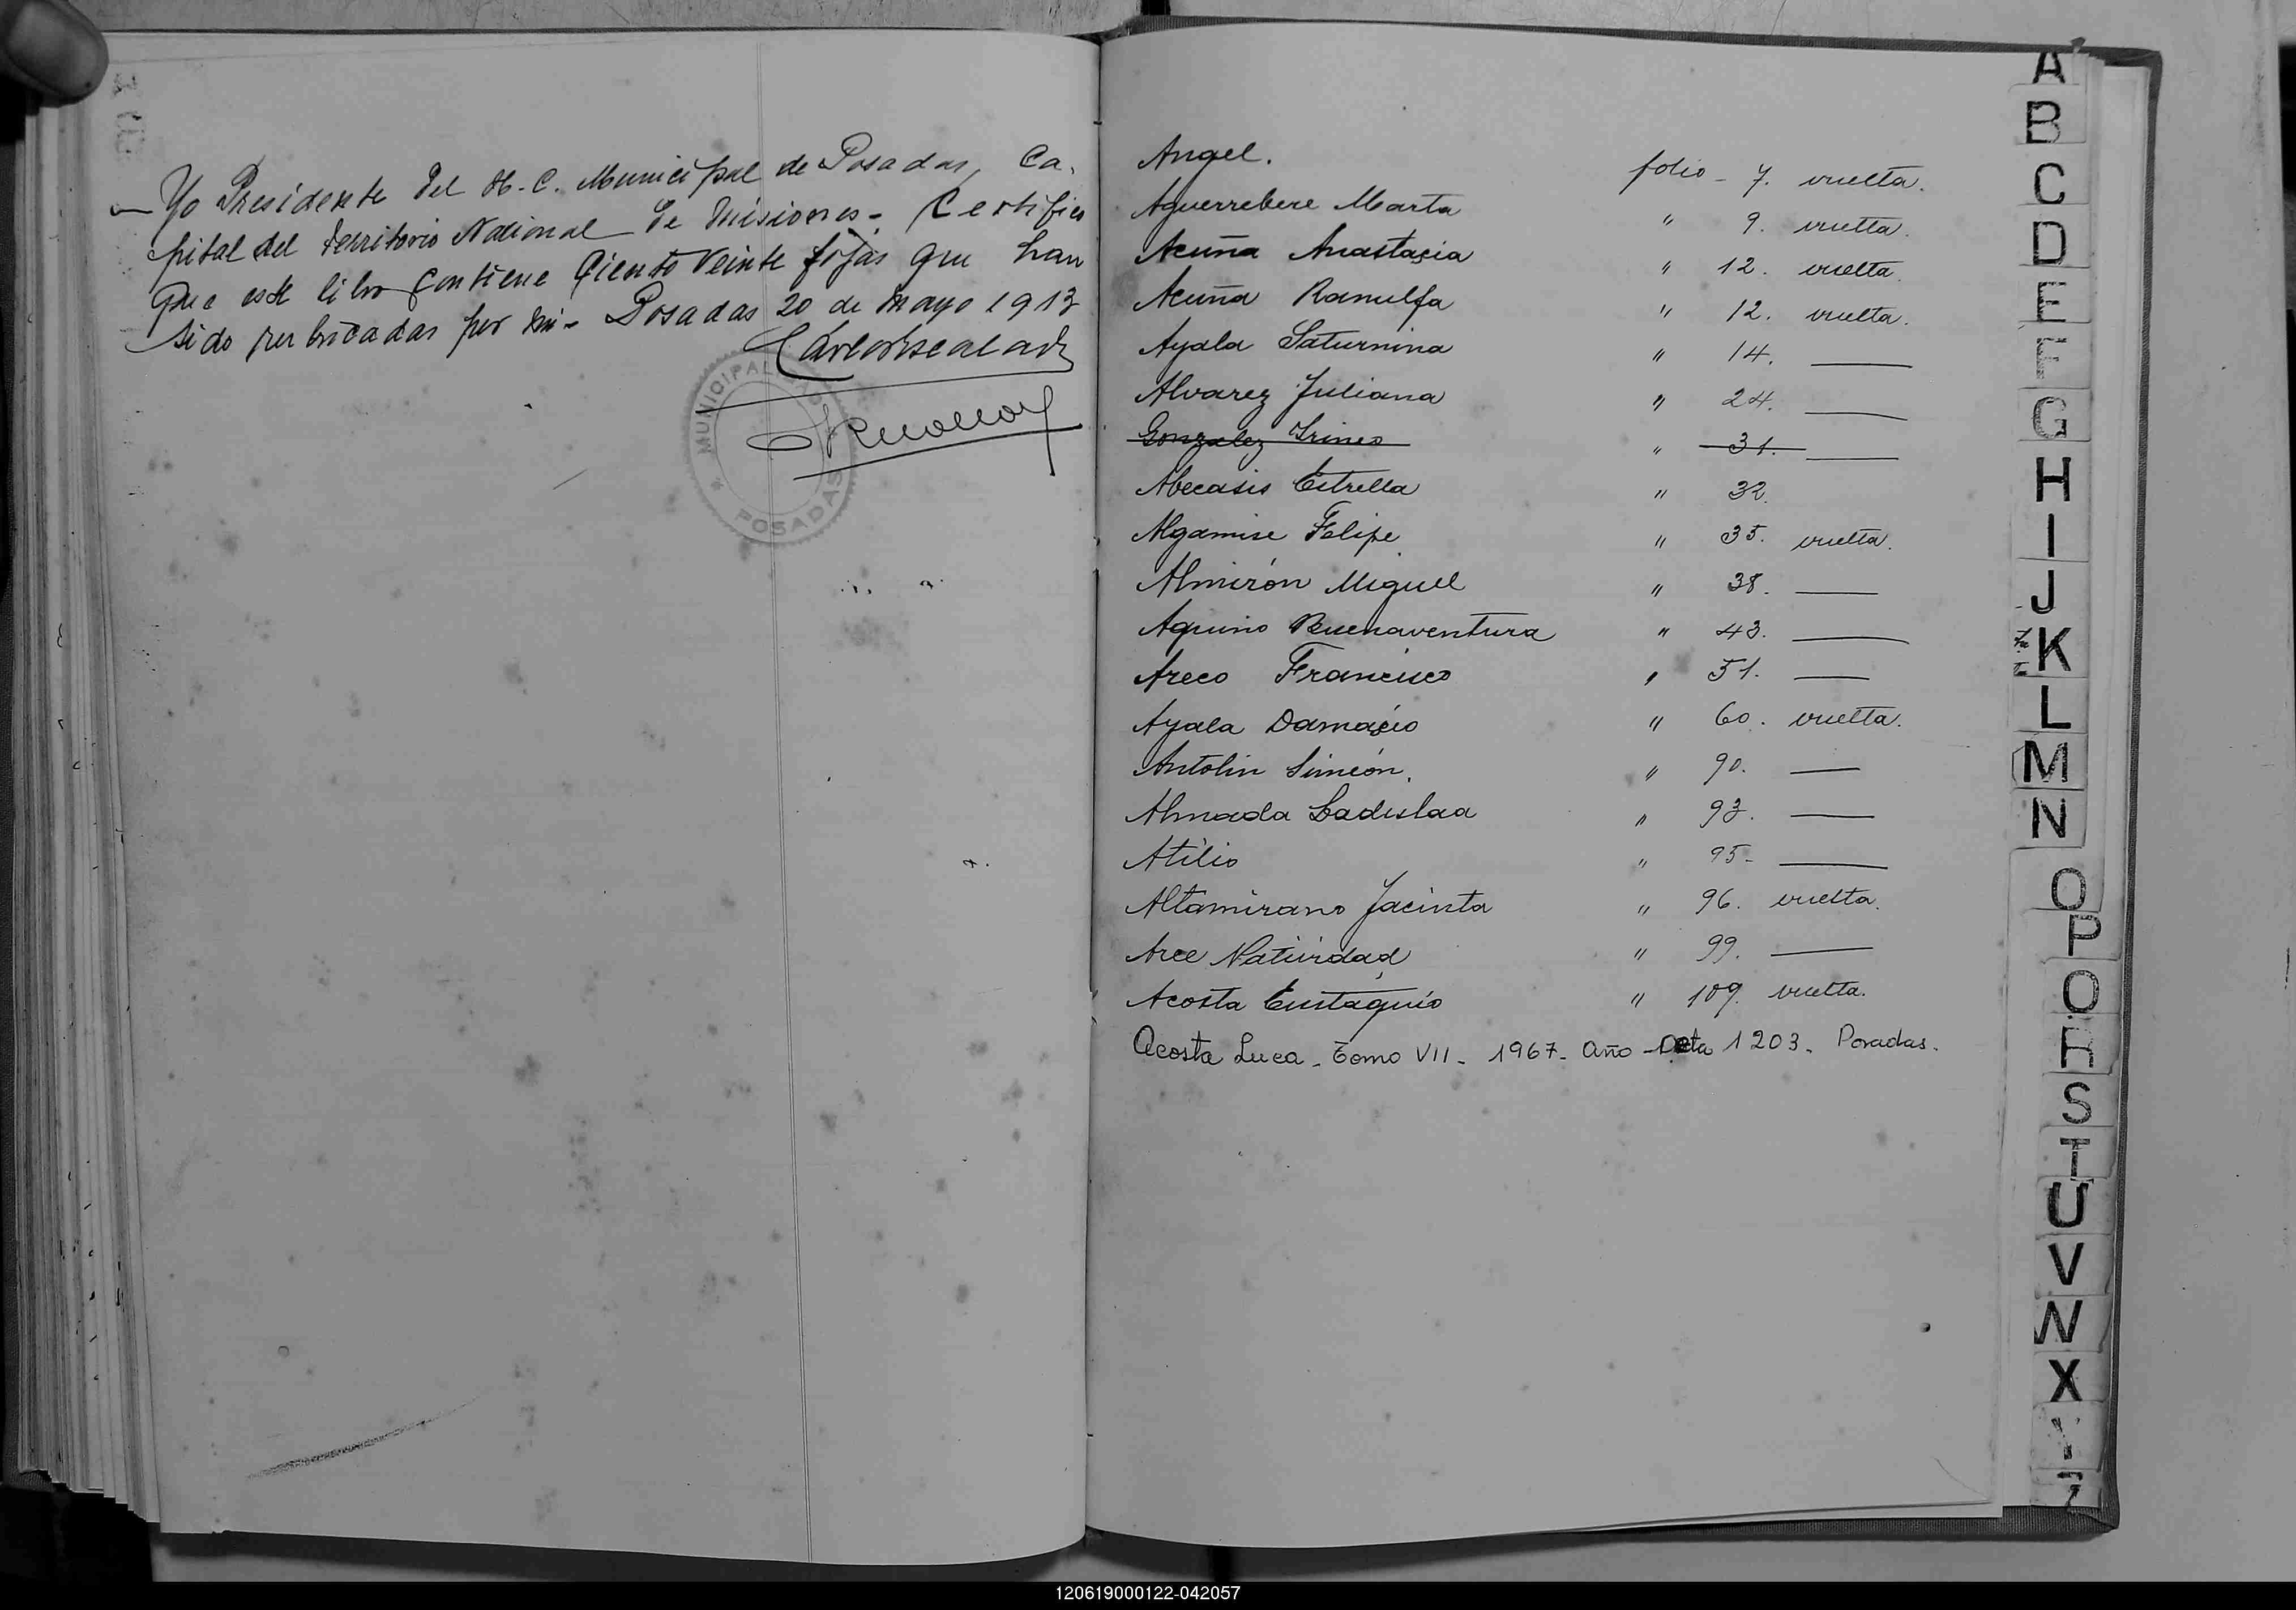 Yo Presidente del H. C. Municipal de Posadas, Ca-
pital del territorio Nacional de Misiones - Certifico
que este libro contiene Ciento Veinte fojas que han
sido rubricadas por mi - Posadas 20 de Mayo 1913
MUNICIPAL
POSADAS
Angel. folio - 7. vuelta.
Aguerrebere Marta " 9. vuelta.
Acuña Anastasia " 12. vuelta.
Acuña Ranulfa " 12. vuelta.
Ayala Saturnina " 14. ———
Alvarez Juliana " 24. ———
Gonzalez Irineo " 31. ———
Abecasis Estrella " 32.
Algamise Felipe " 35. vuelta.
Almirón Miguel " 38. ———
Aquino Buenaventura " 43. ———
Areco Francisco " 51. ———
Ayala Damasio " 60. vuelta.
Antolin Simeón. " 90. ———
Almada Ladislaa " 93. ———
Atilio " 95- ———
Altamirano Jacinta " 96. vuelta.
Arce Natividad " 99. ———
Acosta Eustaquio " 109. vuelta.
Acosta Luca - Tomo VII - 1967 - Año - Acta 1203. Posadas.
A
B
C
D
E
F
G
H
I
J
K
L
M
N
O
P
Q
R
S
T
U
V
W
X
Y
Z
120619000122-042057